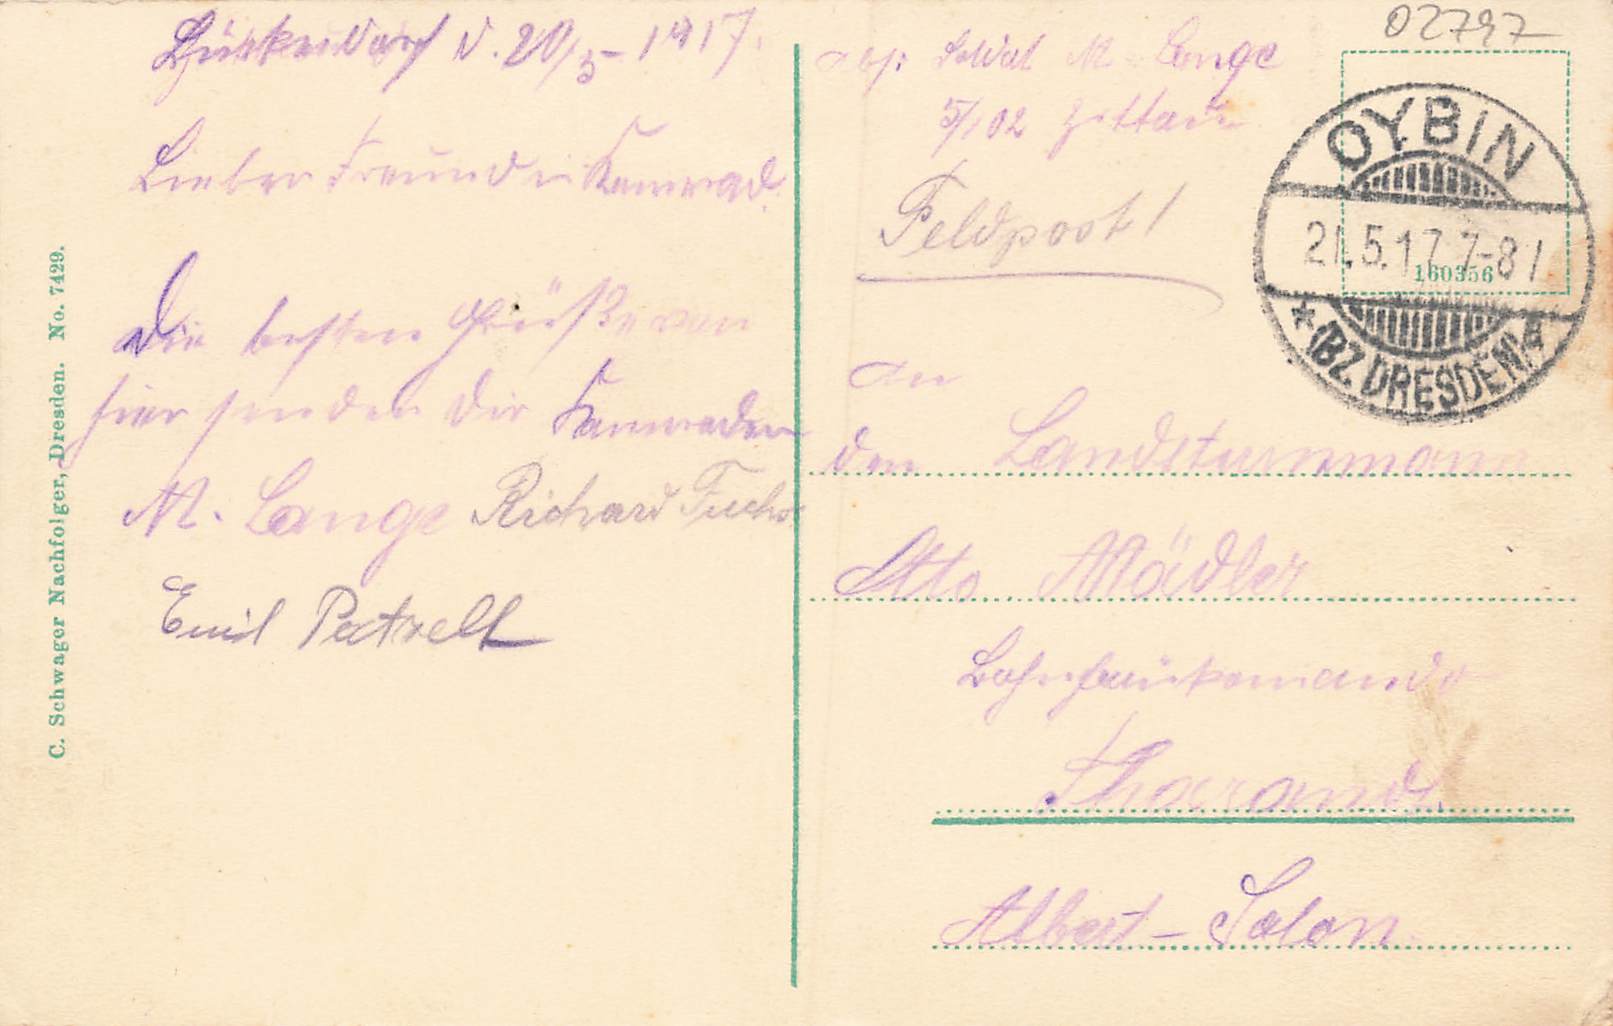 Lückendorf d. 20/5-1917.
Lieber Freund u Kamerad.
Die besten Grüße von
hier senden Dir Kameraden
M. Lange Richard Fuchs
Emil Patzelt
C. Schwager Nachfolger, Dresden. No. 7429.
02797
Abs: Soldat M. Lange
5/102 Zittau
Feldpost!
OYBIN
21.5.17.7-8
(BZ. DRESDEN)
160356
An
den Landsturmmann
Otto Mädler
Tharandt
Albert-Salon